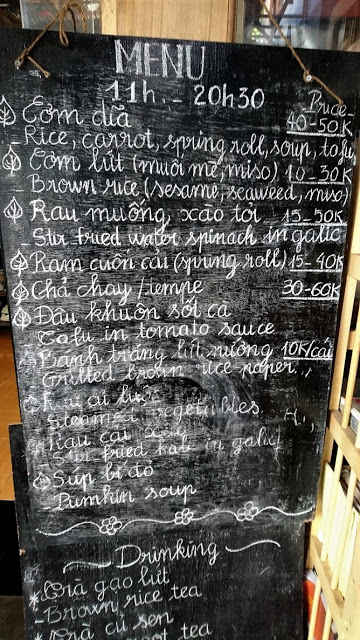 MENU
11h. - 20h30
Price
Cơm dĩa 40-50K
- Rice, carrot, spring roll, soup, tofu
Cơm lứt (muối mè, miso) 10-30K
- Brown rice (sesame, seaweed, miso)
Rau muống xào tỏi 15-50K
- Stir fried water spinach in galic
Ram cuốn cải (spring roll) 15-40K
Chả chay / tempe 30-60K
Đậu khuôn sốt cà
- Tofu in tomato sauce
Bánh tráng lứt nướng 10K/cái
Grilled brown rice paper
Steamed vegetables
Rau cải
Stir fried kale in galic
Súp bí đỏ
- Pumkin soup
Drinking
* Trà gạo lứt
- Brown rice tea
* Trà củ sen
root tea